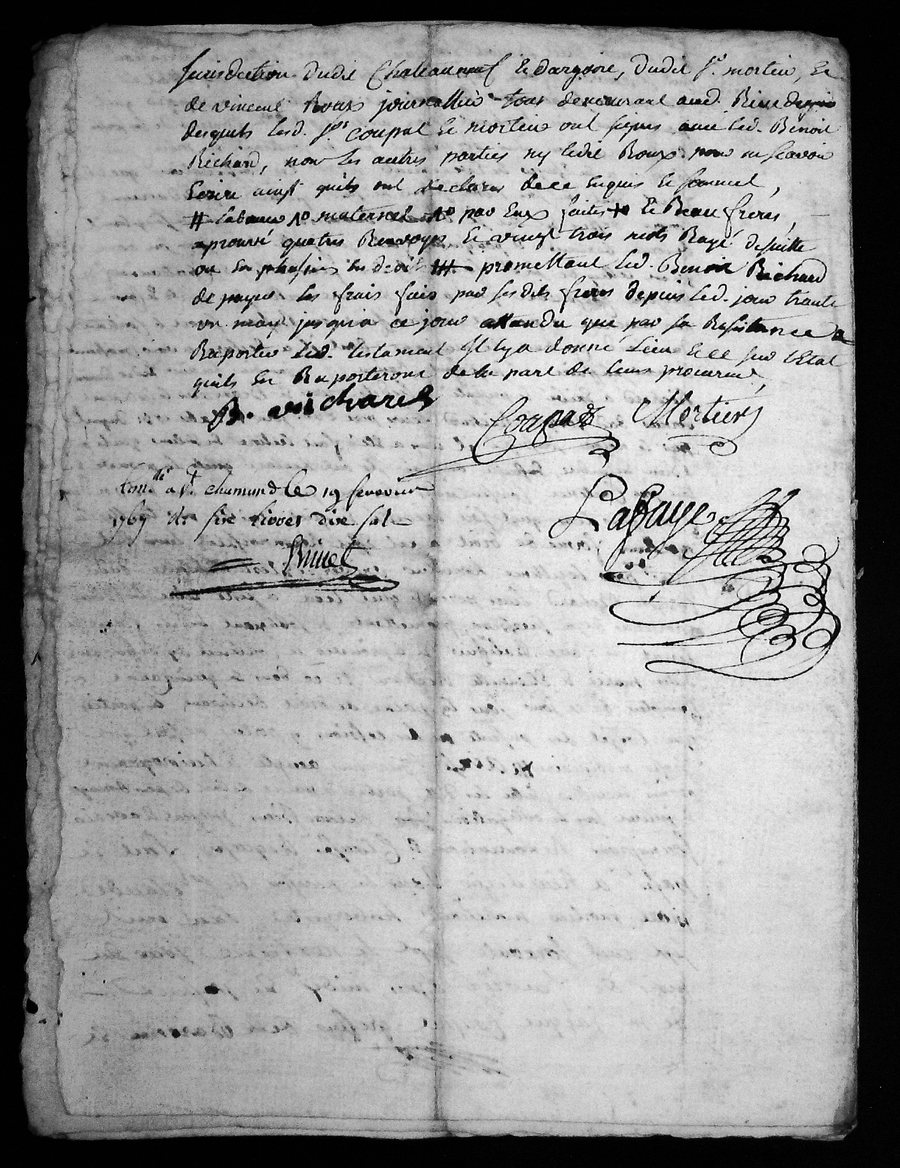 Jurisdiction dudit Chateauneuf & dargoire, dudit Sr. mortier, et
de vincent Roux journallier tous demeurant aud. Rive de gier
desquels lesd. Srs coupat et mortier ont signé avec led. Benoit
Richard, non les autres parties ny ledit Roux pour ne scavoir
Ecrire ainsy quils ont declaré de ce Enquis et sommé,
# maternel par Eux faites & Beau freres,
aprouvé quatre Renvoys, et vingt trois mots Rayé de suitte
ou en plusieurs Endroit # promettant led. Benoit Richard
de payer les frais fais par sesdits freres depuis led. jour trente
un may jusqu'a ce jour attendu que par sa Resistance a
Raporter led. testament Il y a donné Lieu et ce sur l'Etat
quils En Raporteront de la part de leurs procureur,
B. Richard
Coupat Mortier
Lafaye
a St. chamond le 19 fevrier
1769 six livres dix sols